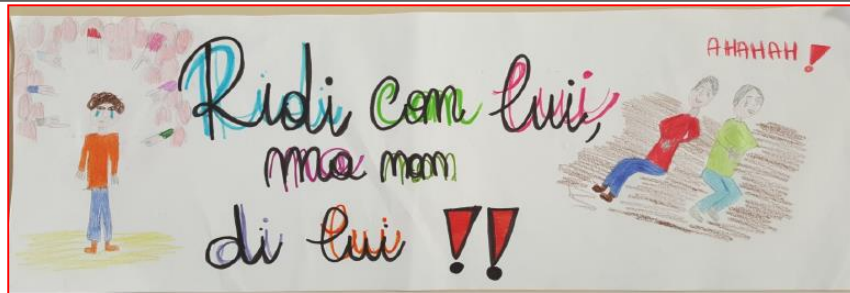 Ridi con lui,
ma non
di lui !!
AHAHAH !